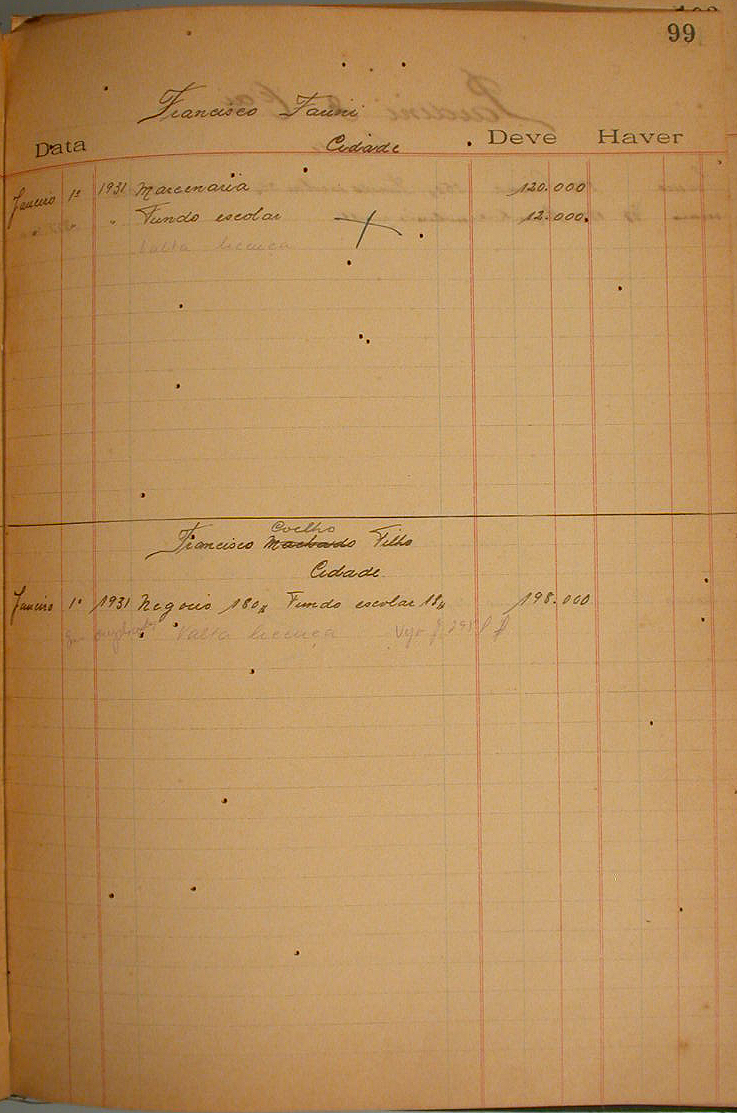 99
Francisco Fauni
Data Cidade Deve Haver
Janeiro 1º 1931 Marcenaria 120.000
" " Fundo escolar 12.000
Falta licença
Coelho
Francisco Machado Filho
Cidade
Janeiro 1º 1931 Negocio 180$ Fundo escolar 18$ 198.000
Falta licença